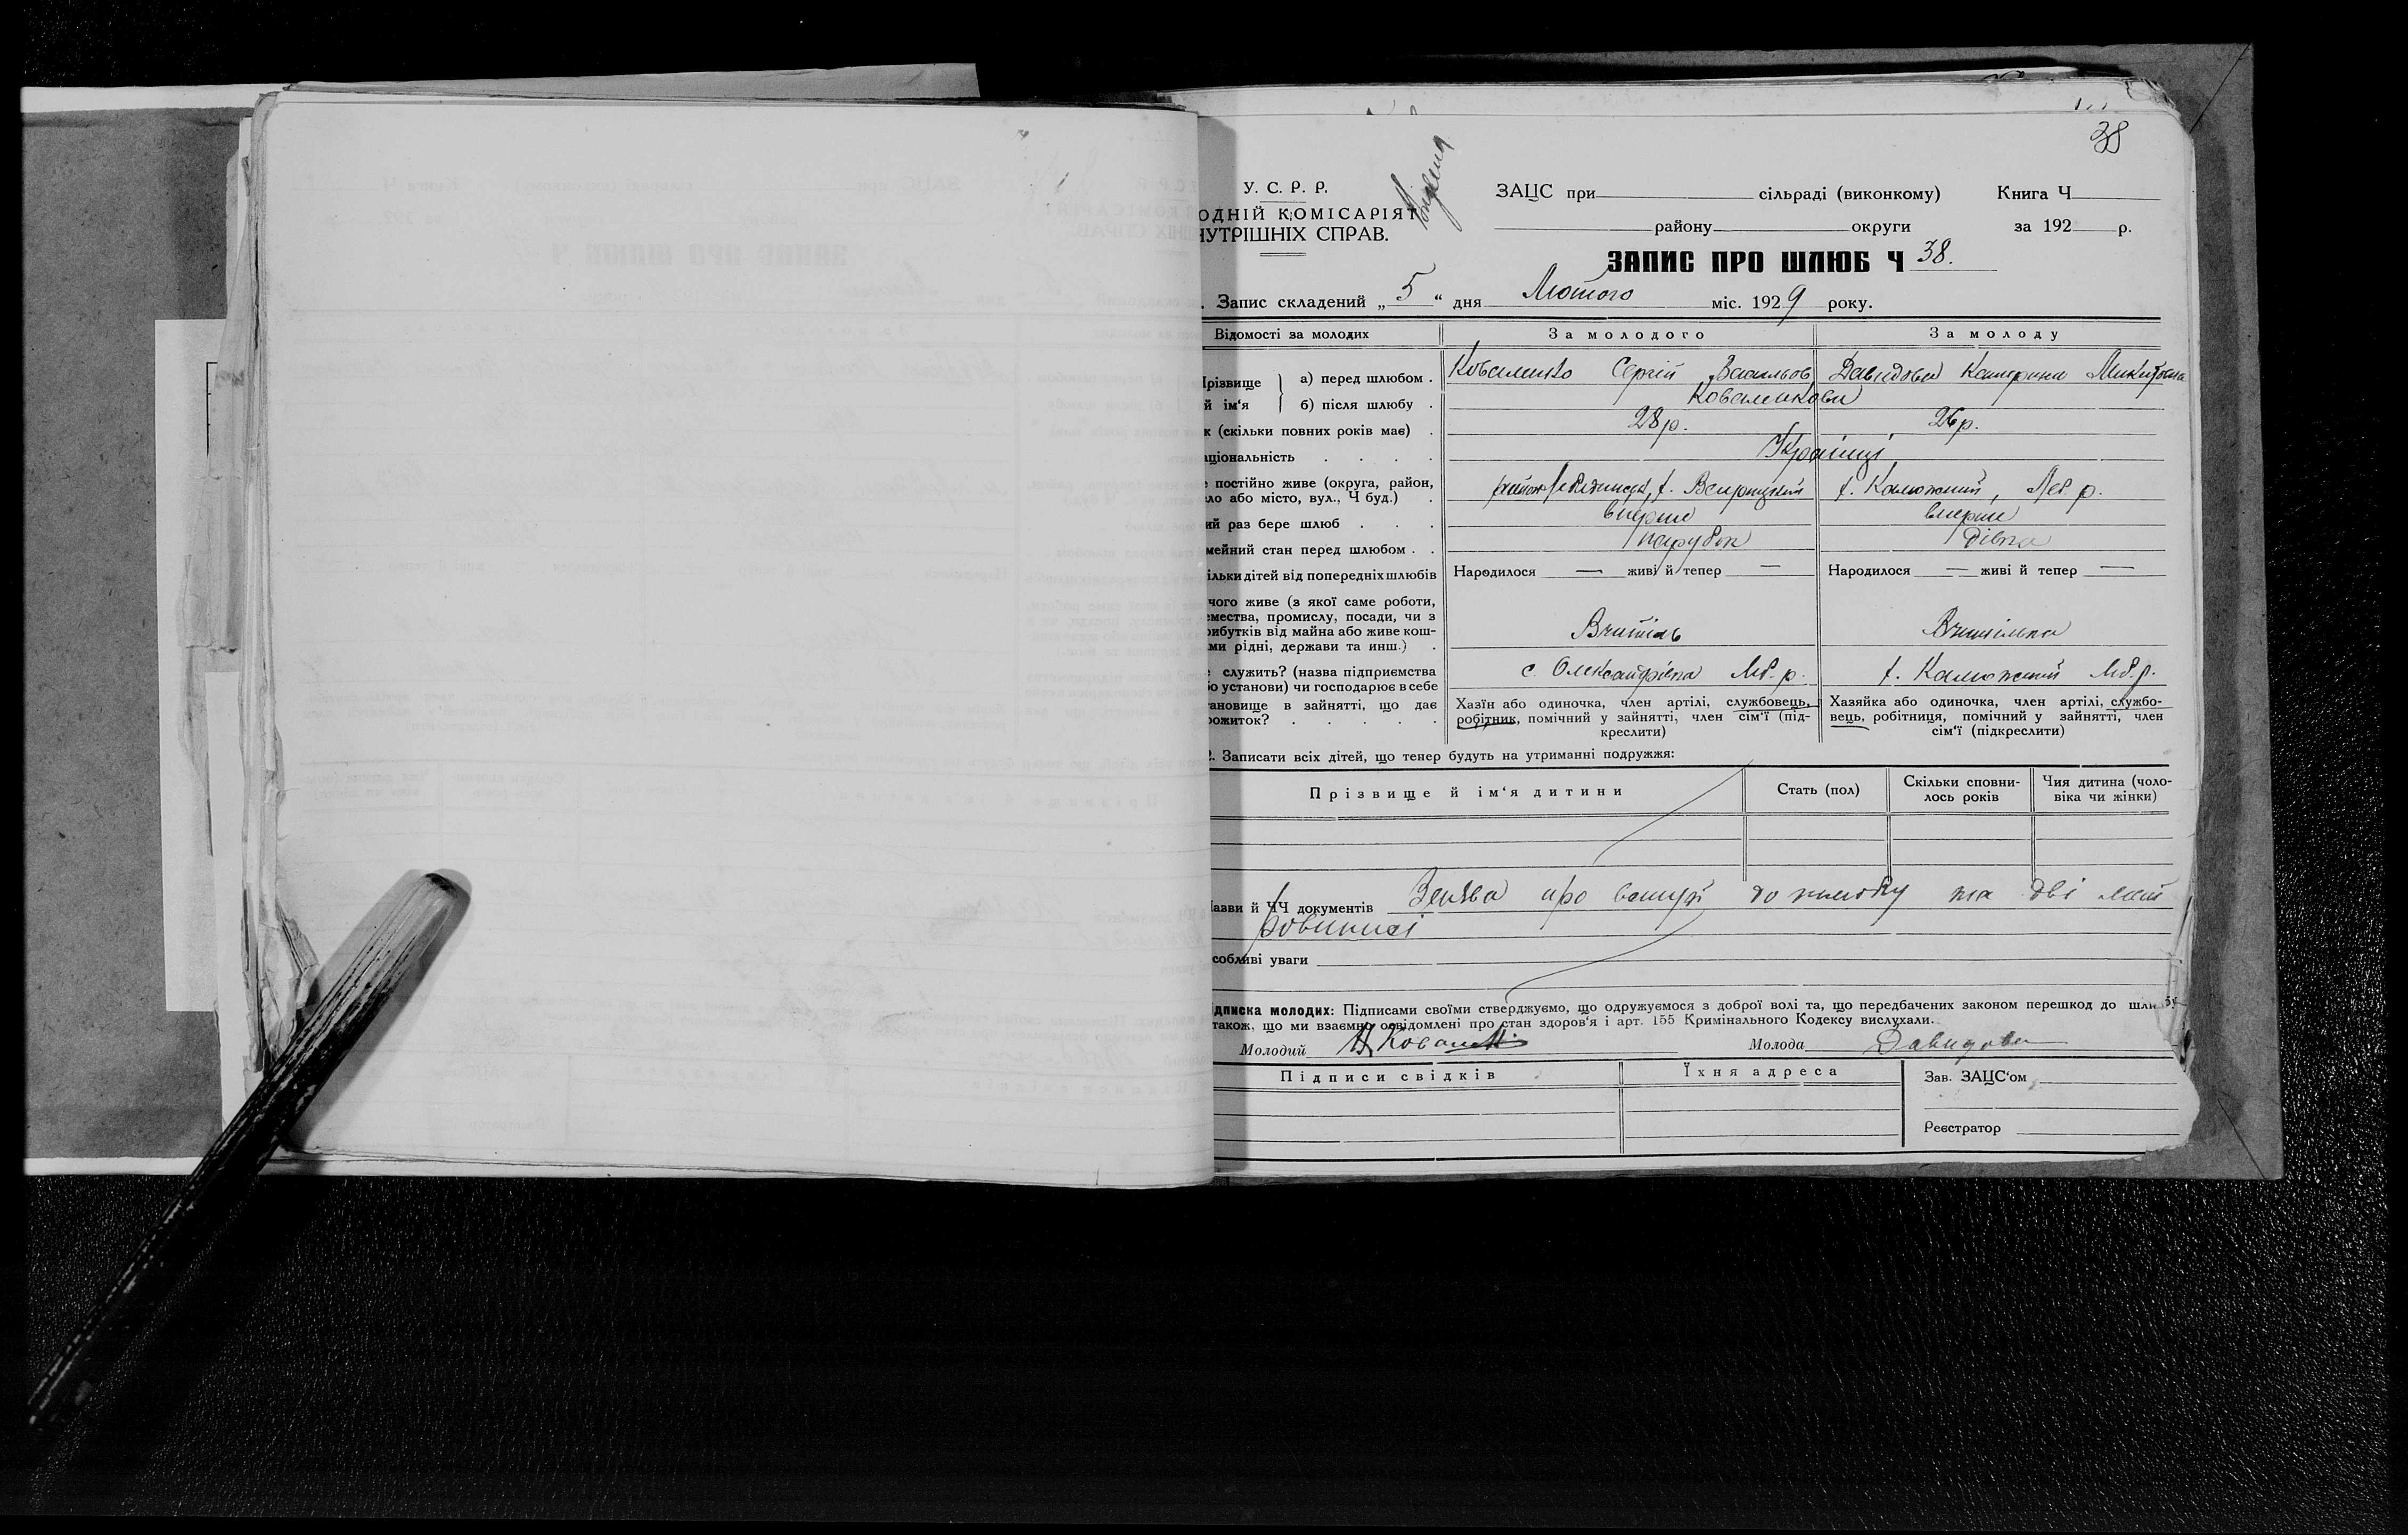 38
У. С. Р. Р.
ОДНІЙ КОМІСАРІЯТ
НУТРІШНІХ СПРАВ.
ЗАЦС при сільраді (виконкому) Книга Ч
району округи за 192 р.
ЗАПИС ПРО ШЛЮБ Ч 38.
Запис складений „5“ дня Лютого міс. 1929 року.
Відомості за молодих За молодого За молоду
різвище а) перед шлюбом . Коваленко Сергій Васильов Давидова Катерина Микитовна
й ім‘я б) після шлюбу . Коваленкови
к (скільки повних років має) . 28 р. 26 р.
аціональність . . . . Українці
постійно живе (округа, район, район Лебединськ, х. Х. Калюжний, Леб. р.
ло або місто, вул., Ч буд.) .
ий раз бере шлюб . . . вперше вперше
мейний стан перед шлюбом . . парубок дівка
ільки дітей від попередніх шлюбів Народилося — живі й тепер — Народилося — живі й тепер —
чого живе (з якої саме роботи,
емества, промислу, посади, чи з
рибутків від майна або живе кош- Вчитель Вчителька
ми рідні, держави та инш.) .
служить? (назва підприємства с. Олександрівка Леб. р. х. Калюжний Леб. р.
о установи) чи господарює в себе
ановище в зайнятті, що дає Хазїн або одиночка, член артілі, службовець, Хазяйка або одиночка, член артілі, службо-
рожиток? . . . . . робітник, помічний у зайнятті, член сім‘ї (під- вець, робітниця, помічний у зайнятті, член
креслити) сім‘ї (підкреслити)
2. Записати всіх дітей, що тепер будуть на утриманні подружжя:
Прізвище й ім‘я дитини Стать (пол) Скільки сповни- Чия дитина (чоло-
лось років віка чи жінки)
азви й ЧЧ документів Заява про вступ до шлюбу та дві
собливі уваги
дписка молодих: Підписами своїми стверджуємо, що одружуємося з доброї волі та, що передбачених законом перешкод до шлюбу
також, що ми взаємно освідомлені про стан здоров‘я і арт. 155 Кримінального Кодексу вислухали.
Молодий Молода Давидова
Підписи свідків Їхня адреса Зав. ЗАЦС‘ом
Реєстратор